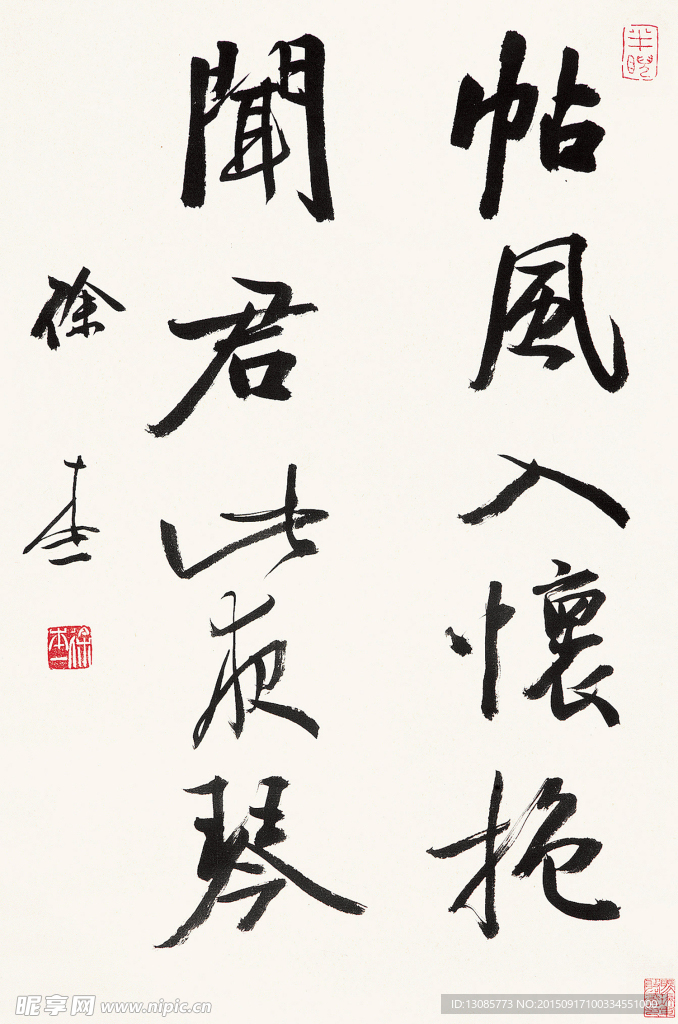 帖風入懷抱
聞君此夜琴
徐本一
徐本一
昵享网 www.nipic.cn
ID:13085773 NO:20150917100334551000